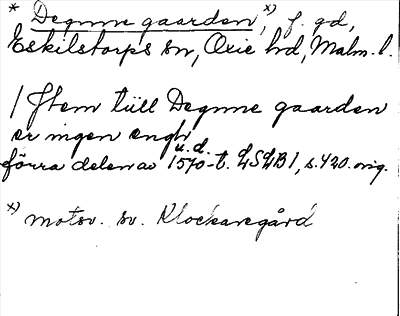 * Degnne gaarden, x) f. gd,
Eskilstorps sn, Oxie hd, Malm. l.
/ Jtem tiill Degnne gaarden
er ingen engh
u.d.
förra delen av 1570-t. LSLB 1, s. 420. orig.
x) motsv. sv. Klockaregård